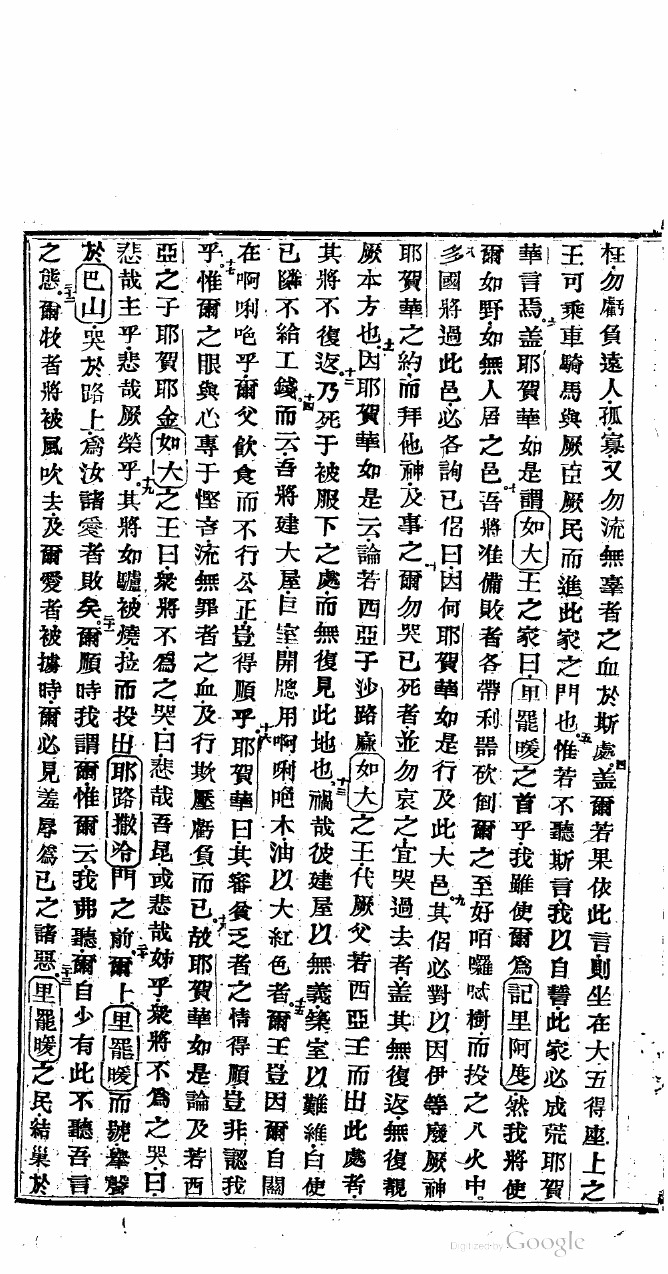 枉勿虧負遠人孤寡又勿流無辜者之血於斯處四蓋爾若果依此言則坐在大五得座上之
王可乘車騎馬與厥臣厥民而進此家之門也五惟若不聽斯言我以自誓此家必成荒耶賀
華言焉六蓋耶賀華如是謂如大王之家曰里罷暖之首乎我雖使爾為記里阿度然我將使
爾如野如無人居之邑七吾將准備敗者各帶利噐砍倒爾之至好咟囉𠵽樹而投之入火中
八多國將過此邑必各詢已侶曰因何耶賀華如是行及此大邑九其侶必對以因伊等廢厥神
耶賀華之約而拜他神及事之十爾勿哭已死者並勿哀之宜哭過去者蓋其無復返無復覩
厥本方也十一因耶賀華如是云論若西亞子沙路麻如大之王代厥父若西亞王而出此處者
其將不復返十二乃死于被服下之處而無復見此地也十三禍哉彼建屋以無義築室以難維自使
已隣不給工錢十四而云吾將建大屋巨室開牕用啊唎吔木油以大紅色者十五爾王豈因爾自關
在啊唎吔乎爾父飲食而不行公正豈得順乎十六耶賀華曰其審貧乏者之情得順豈非認我
乎十七惟爾之眼與心專于慳吝流無罪者之血及行欺壓虧負而已十八故耶賀華如是論及若西
亞之子耶賀耶金如大之王曰衆將不為之哭曰悲哉吾昆或悲哉姊乎衆將不為之哭曰
悲哉主乎悲哉厥榮乎十九其將如驢被燒拉而投出耶路撒冷門之前二十爾上里罷暖而號舉聲
於巴山哭於路上為汝諸愛者敗矣二十一爾順時我謂爾惟爾云我弗聽爾自少有此不聽吾言
之態二十二爾牧者將被風吹去及爾愛者被擄時爾必見羞辱為已之諸惡二十三里罷暖之民結巢於
Digitized by Google